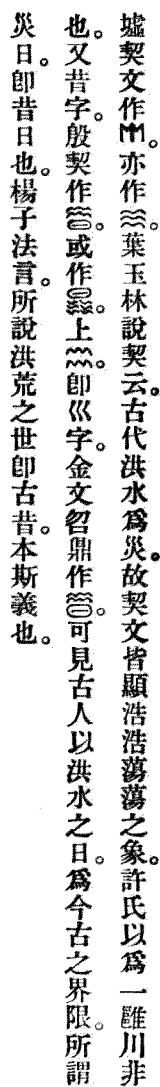 墟契文作。亦作。葉玉林說契云。古代洪水爲災。故契文皆顯浩浩蕩蕩之象。許氏以爲一雝川非
也。又昔字。殷契作。或作。上。卽巛字。金文曶鼎作。可見古人以洪水之日。爲今古之界限。所謂
災日。卽昔日也。楊子法言。所說洪荒之世卽古昔。本斯義也。